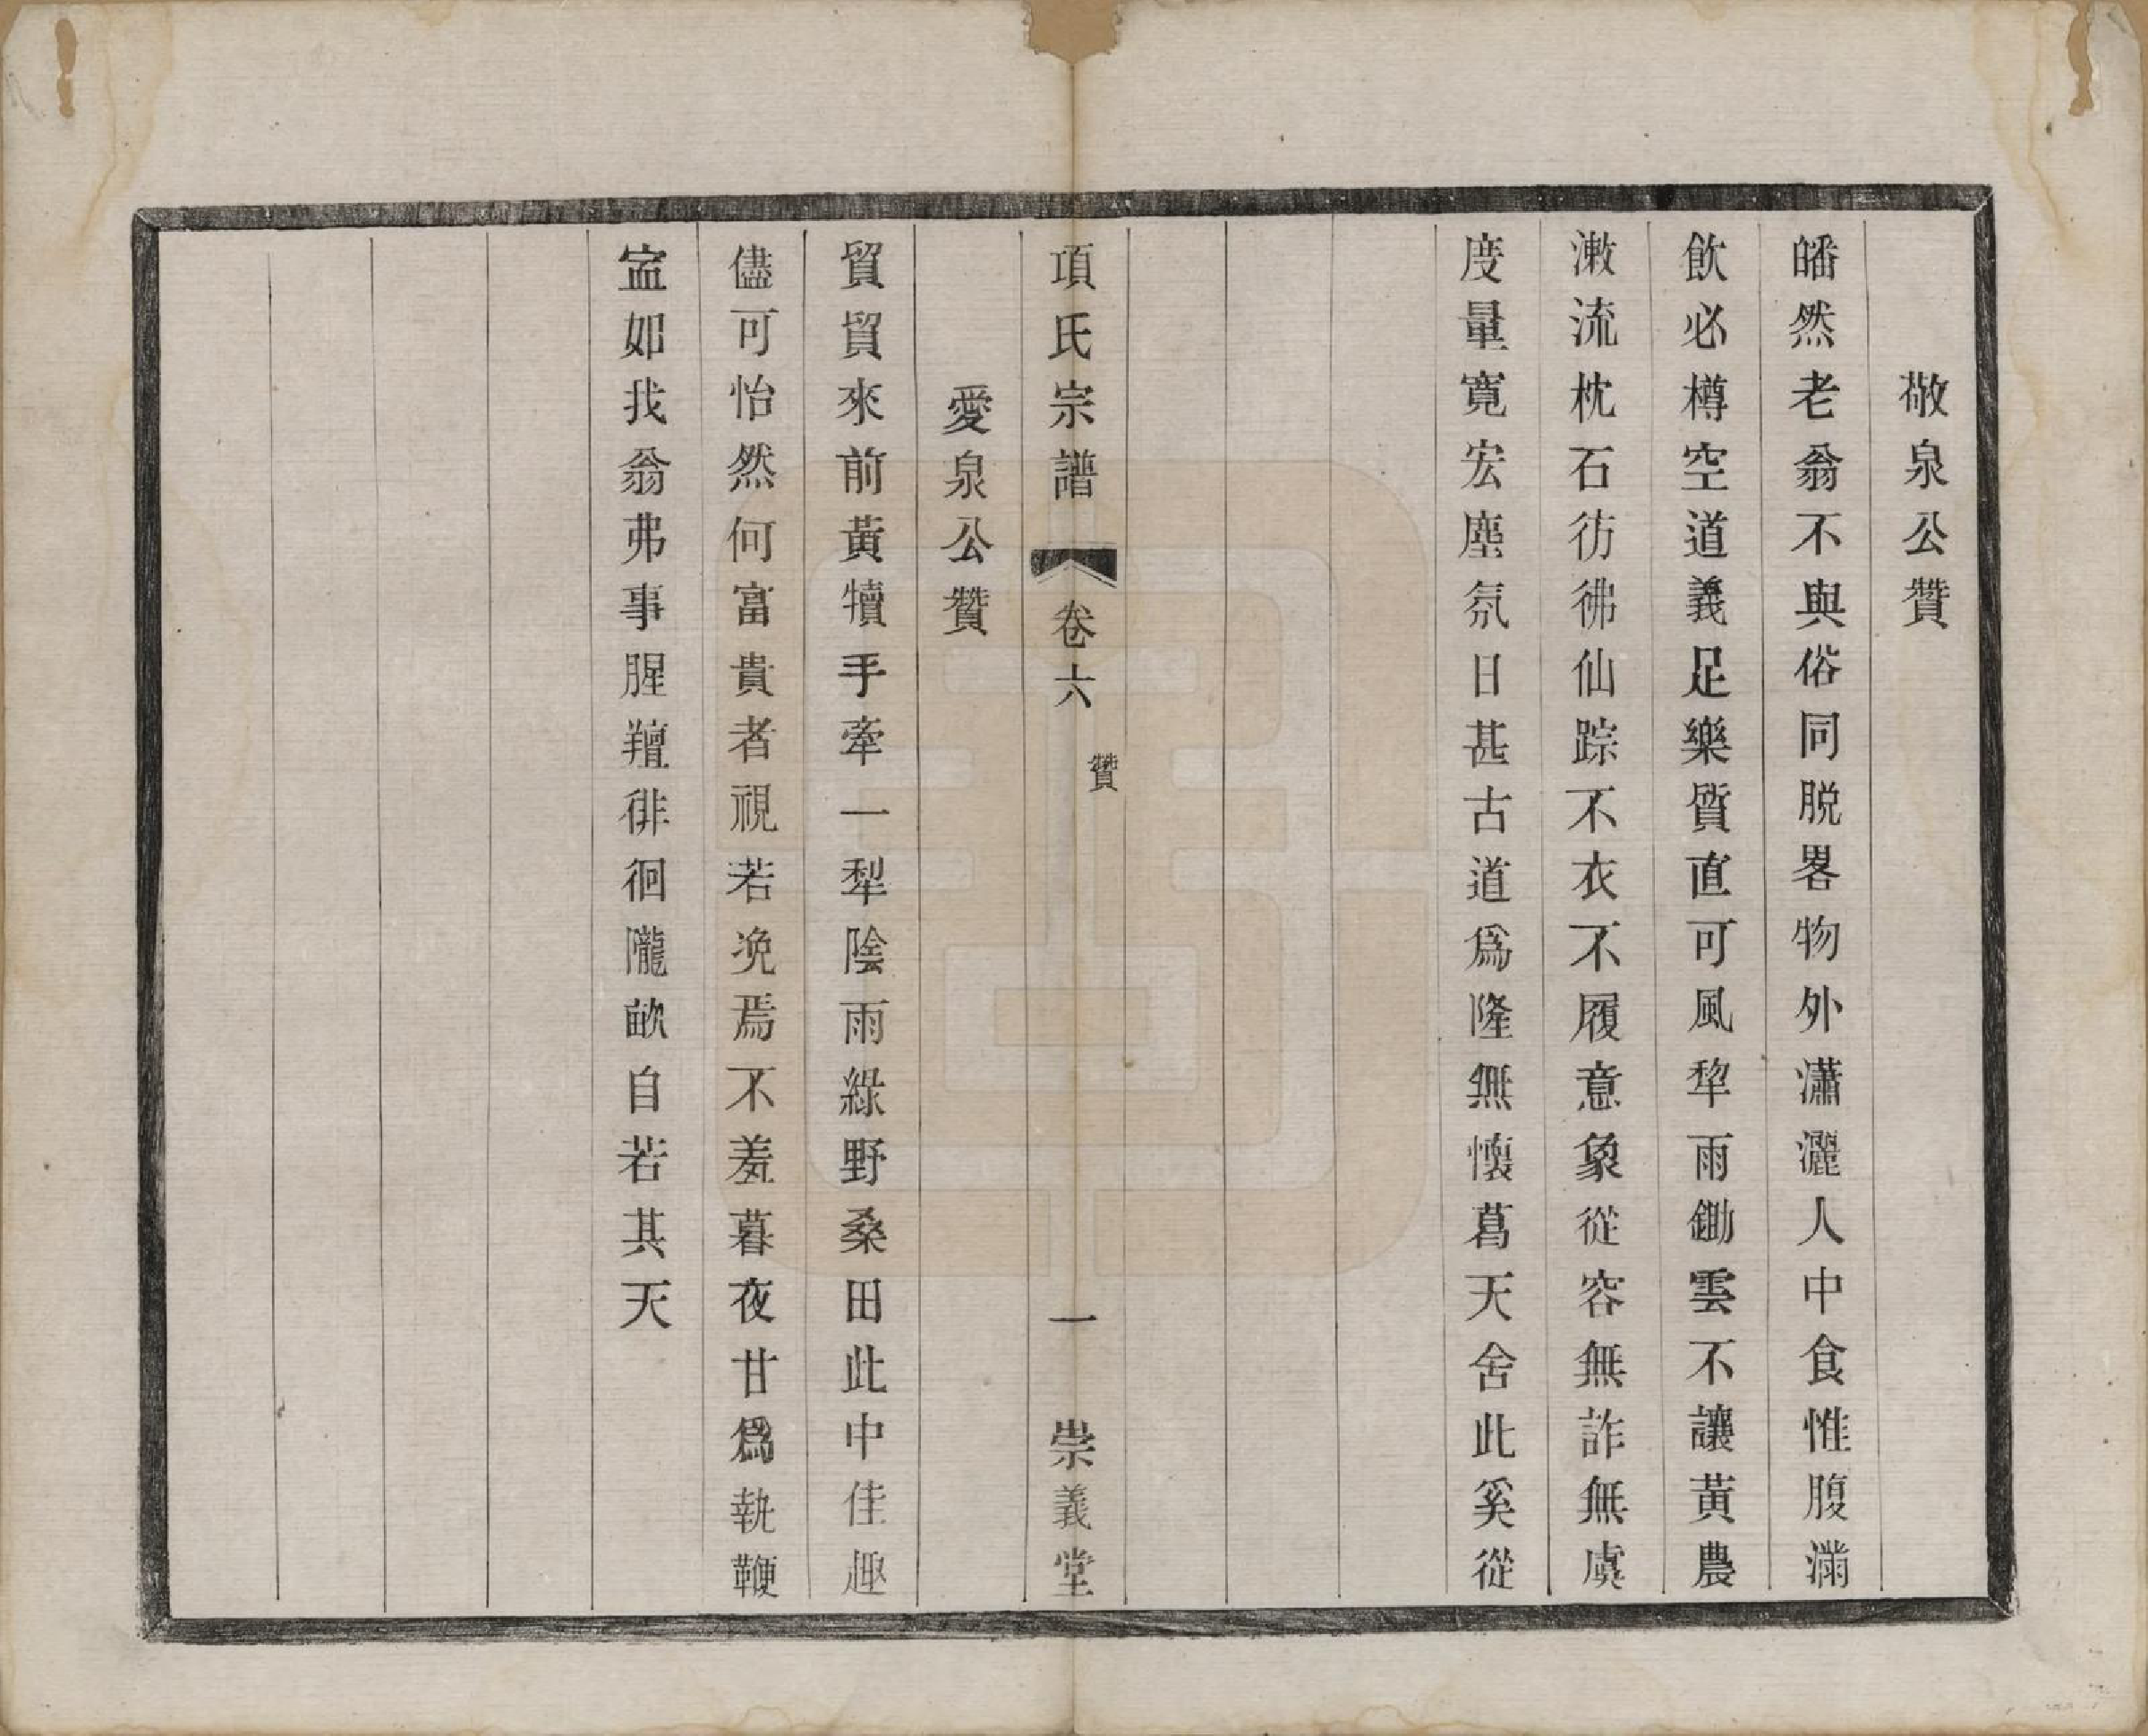 敬泉公贊
皤然老翁不與俗同脱畧物外瀟灑人中食惟腹滿
飲必樽空道義足樂質直可風犂雨鋤雲不讓黃農
漱流枕石彷彿仙踪不衣不履意象從容無詐無虞
度量寬宏塵氛日甚古道爲隆無懷葛天舍此奚從
項氏宗譜 卷六 贊 一 崇義堂
愛泉公贊
貿貿來前黃犢手牽一犁陰雨綠野桑田此中佳趣
儘可怡然何富貴者視若凂焉不羞暮夜甘爲執鞭
寍如我翁弗事腥羶徘徊隴畝自若其天